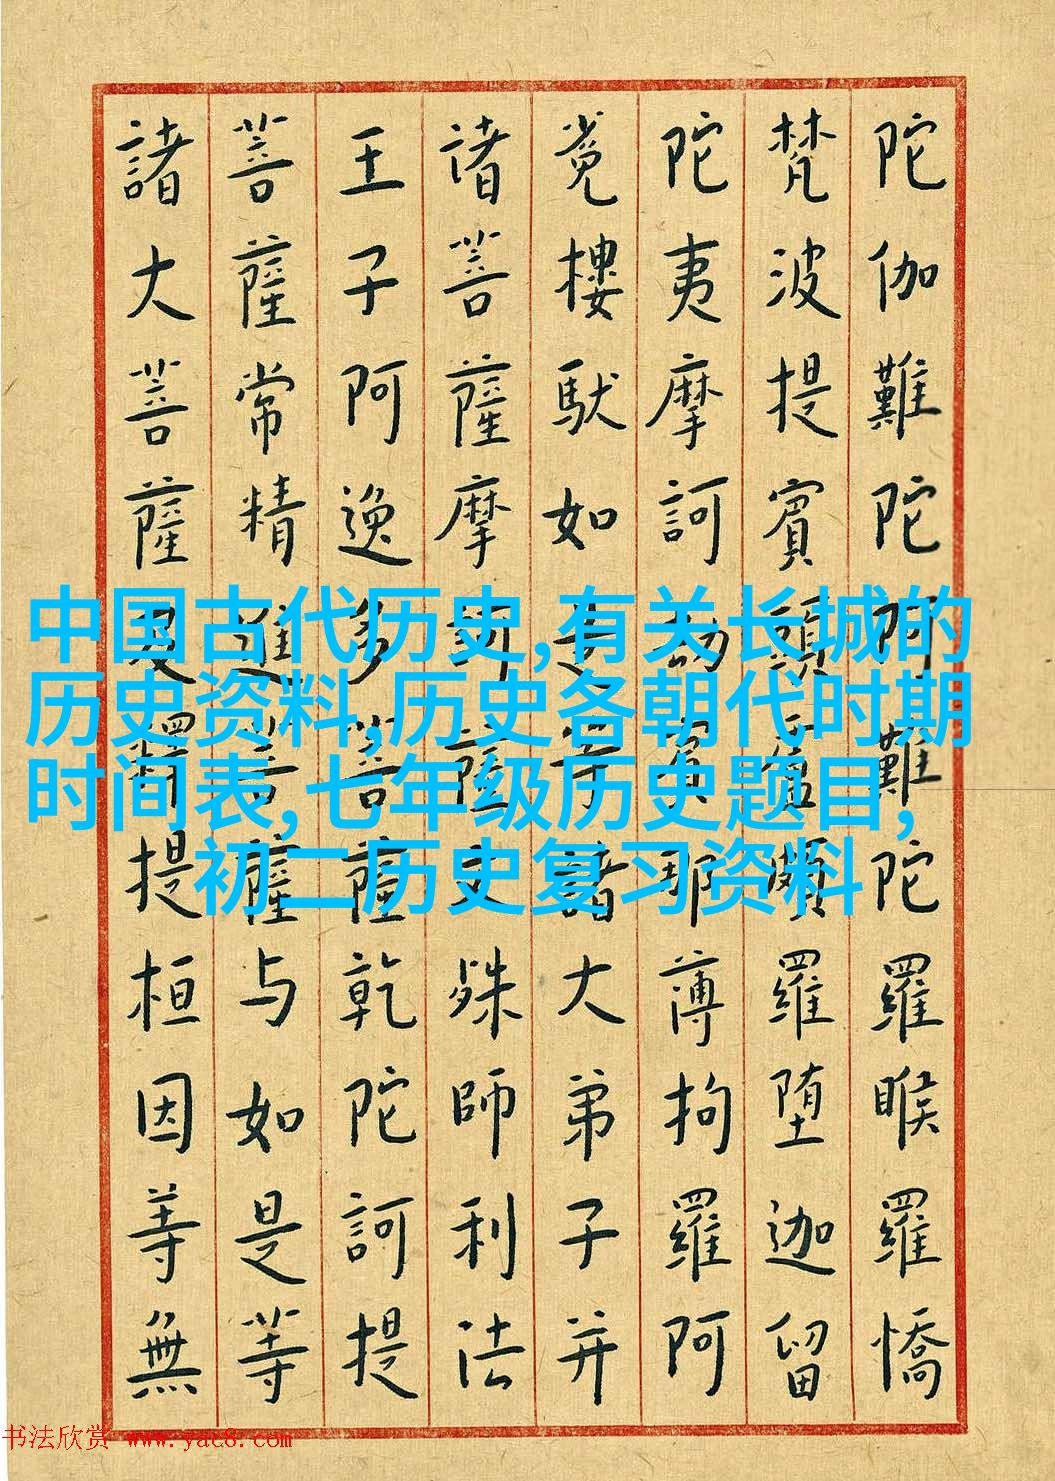 陀伽難陀阿難陀羅睺羅憍
梵波提賓頭盧頗羅堕迦留
陀夷摩訶劫賓那薄拘羅阿
㝹樓馱如是等諸大弟子并
诸菩薩摩訶薩文殊師利法
王子阿逸多菩薩乾陀訶提
菩薩常精進菩薩与如是等
諸大菩薩及釋提桓因等無
中国古代历史,有关长城的
历史资料,历史各朝代时期
时间表,七年级历史题目,
初二历史复习资料
书法欣赏 www.yac8.com